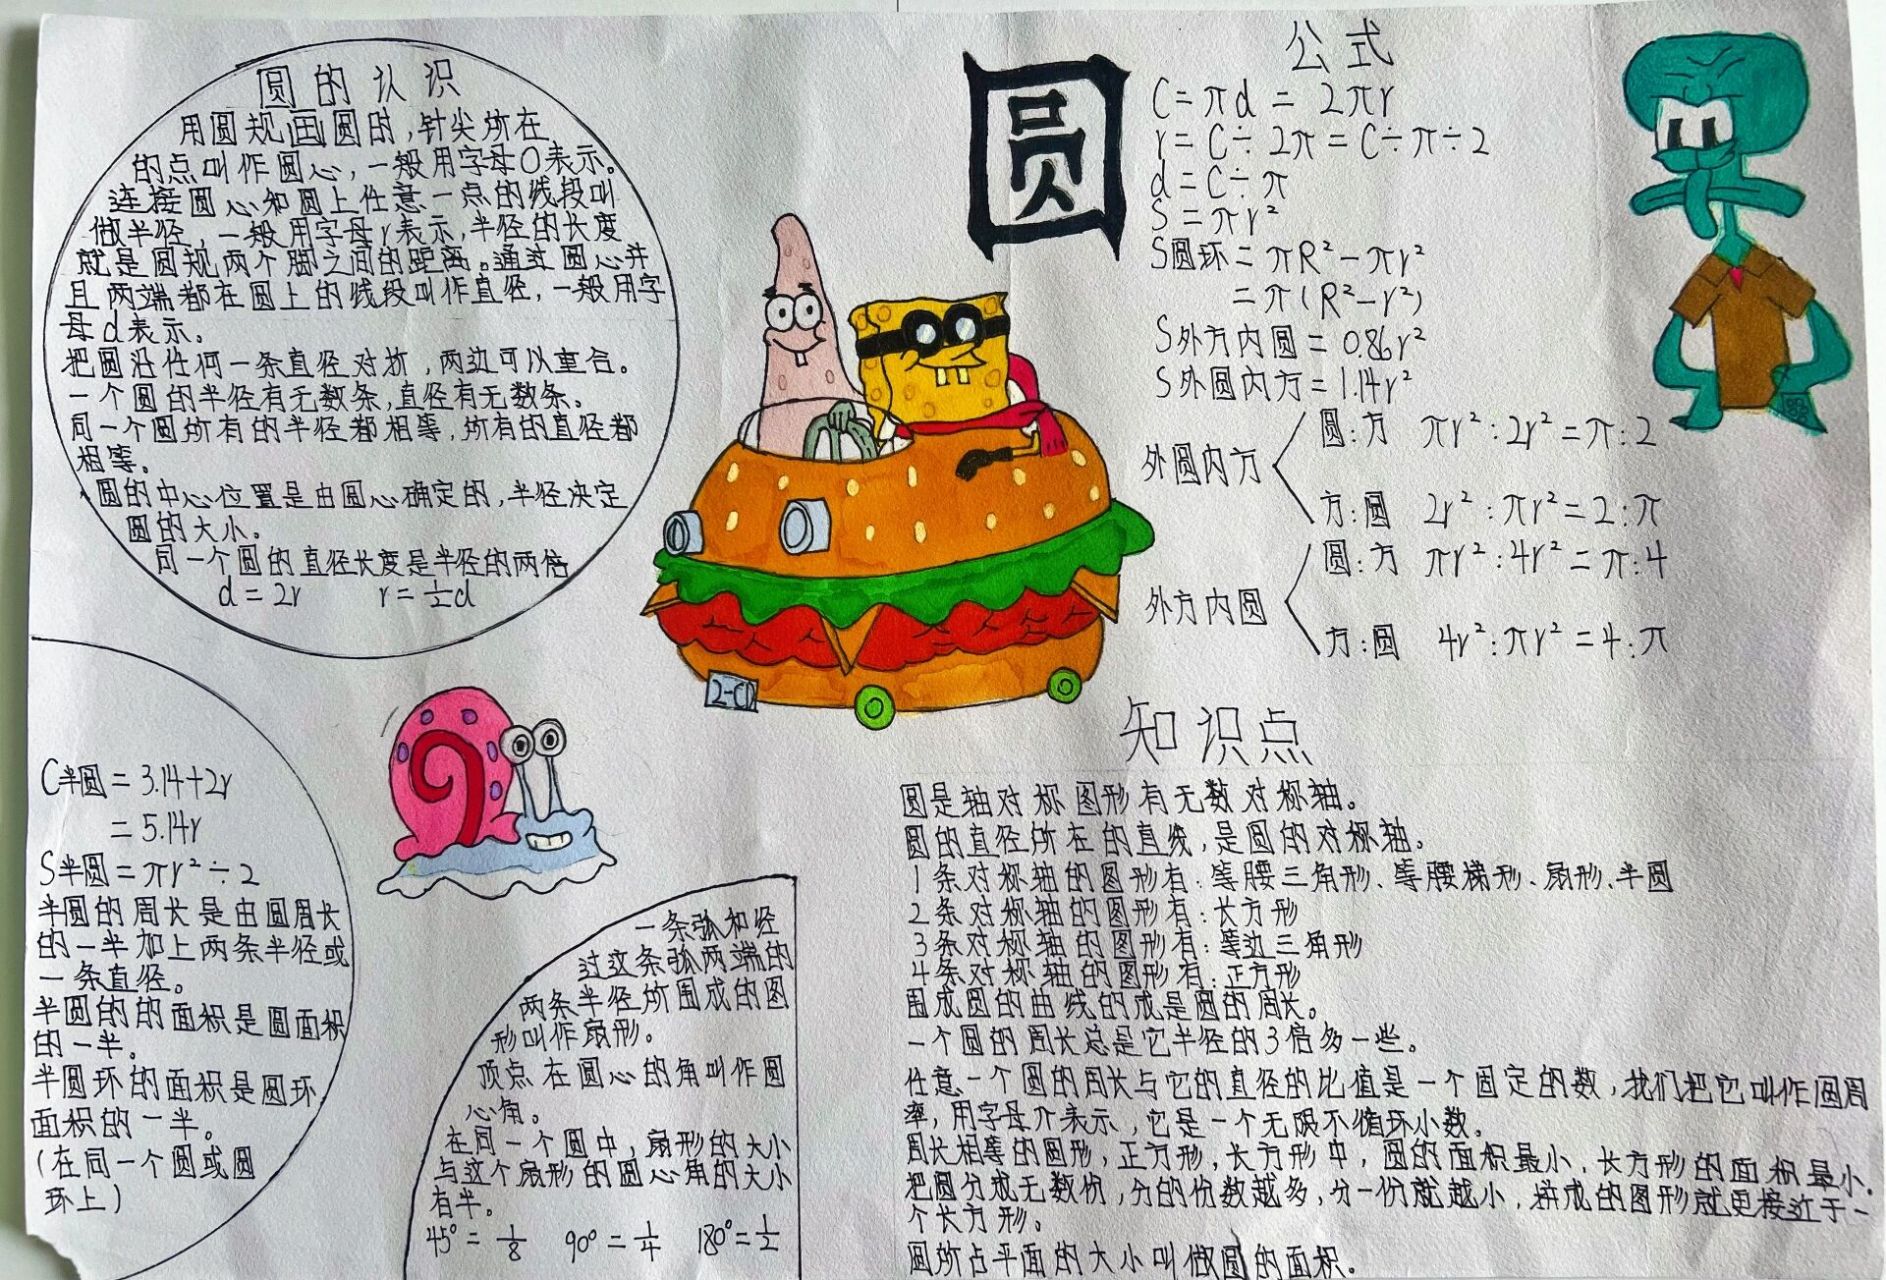 圆的认识
用圆规画圆时,针尖所在
的点叫作圆心,一般用字母O表示。
连接圆心和圆上任意一点的线段叫
做半径,一般用字母r表示,半径的长度
就是圆规两个脚之间的距离。通过圆心并
且两端都在圆上的线段叫作直径,一般用字
母d表示。
把圆沿任何一条直径对折,两边可以重合。
一个圆的半径有无数条,直径有无数条。
同一个圆所有的半径都相等,所有的直径都
相等。
圆的中心位置是由圆心确定的,半径决定
圆的大小。
同一个圆的直径长度是半径的两倍
d=2r r=½d
圆
公式
C=πd=2πr
r=C÷2π=C÷π÷2
d=C÷π
S=πr²
S圆环=πR²-πr²
=π(R²-r²)
S外方内圆=0.86r²
S外圆内方=1.14r²
外圆内方
圆:方 πr²:2r²=π:2
方:圆 2r²:πr²=2:π
外方内圆
圆:方 πr²:4r²=π:4
方:圆 4r²:πr²=4:π
C半圆=3.14+2r
=5.14r
S半圆=πr²÷2
半圆的周长是由圆周长
的一半加上两条半径或
一条直径。
半圆的的面积是圆面积
的一半。
半圆环的面积是圆环
面积的一半。
(在同一个圆或圆
环上)
一条弧和经
过这条弧两端的
两条半径所围成的图
形叫作扇形。
顶点在圆心的角叫作圆
心角。
在同一个圆中,扇形的大小
与这个扇形的圆心角的大小
有半。
45°=⅛ 90°=¼ 180°=½
知识点
圆是轴对称图形有无数对称轴。
圆的直径所在的直线,是圆的对称轴。
1条对称轴的图形有:等腰三角形、等腰梯形、扇形、半圆
2条对称轴的图形有:长方形
3条对称轴的图形有:等边三角形
4条对称轴的图形有:正方形
围成圆的曲线的成是圆的周长。
一个圆的周长总是它半径的3倍多一些。
任意一个圆的周长与它的直径的比值是一个固定的数,我们把它叫作圆周
率,用字母π表示,它是一个无限不循环小数。
周长相等的圆形,正方形,长方形中,圆的面积最小,长方形的面积最小.
把圆分成无数份,分的份数越多,分一份就越小,拼成的图形就更接近于一
个长方形。
圆所占平面的大小叫做圆的面积.